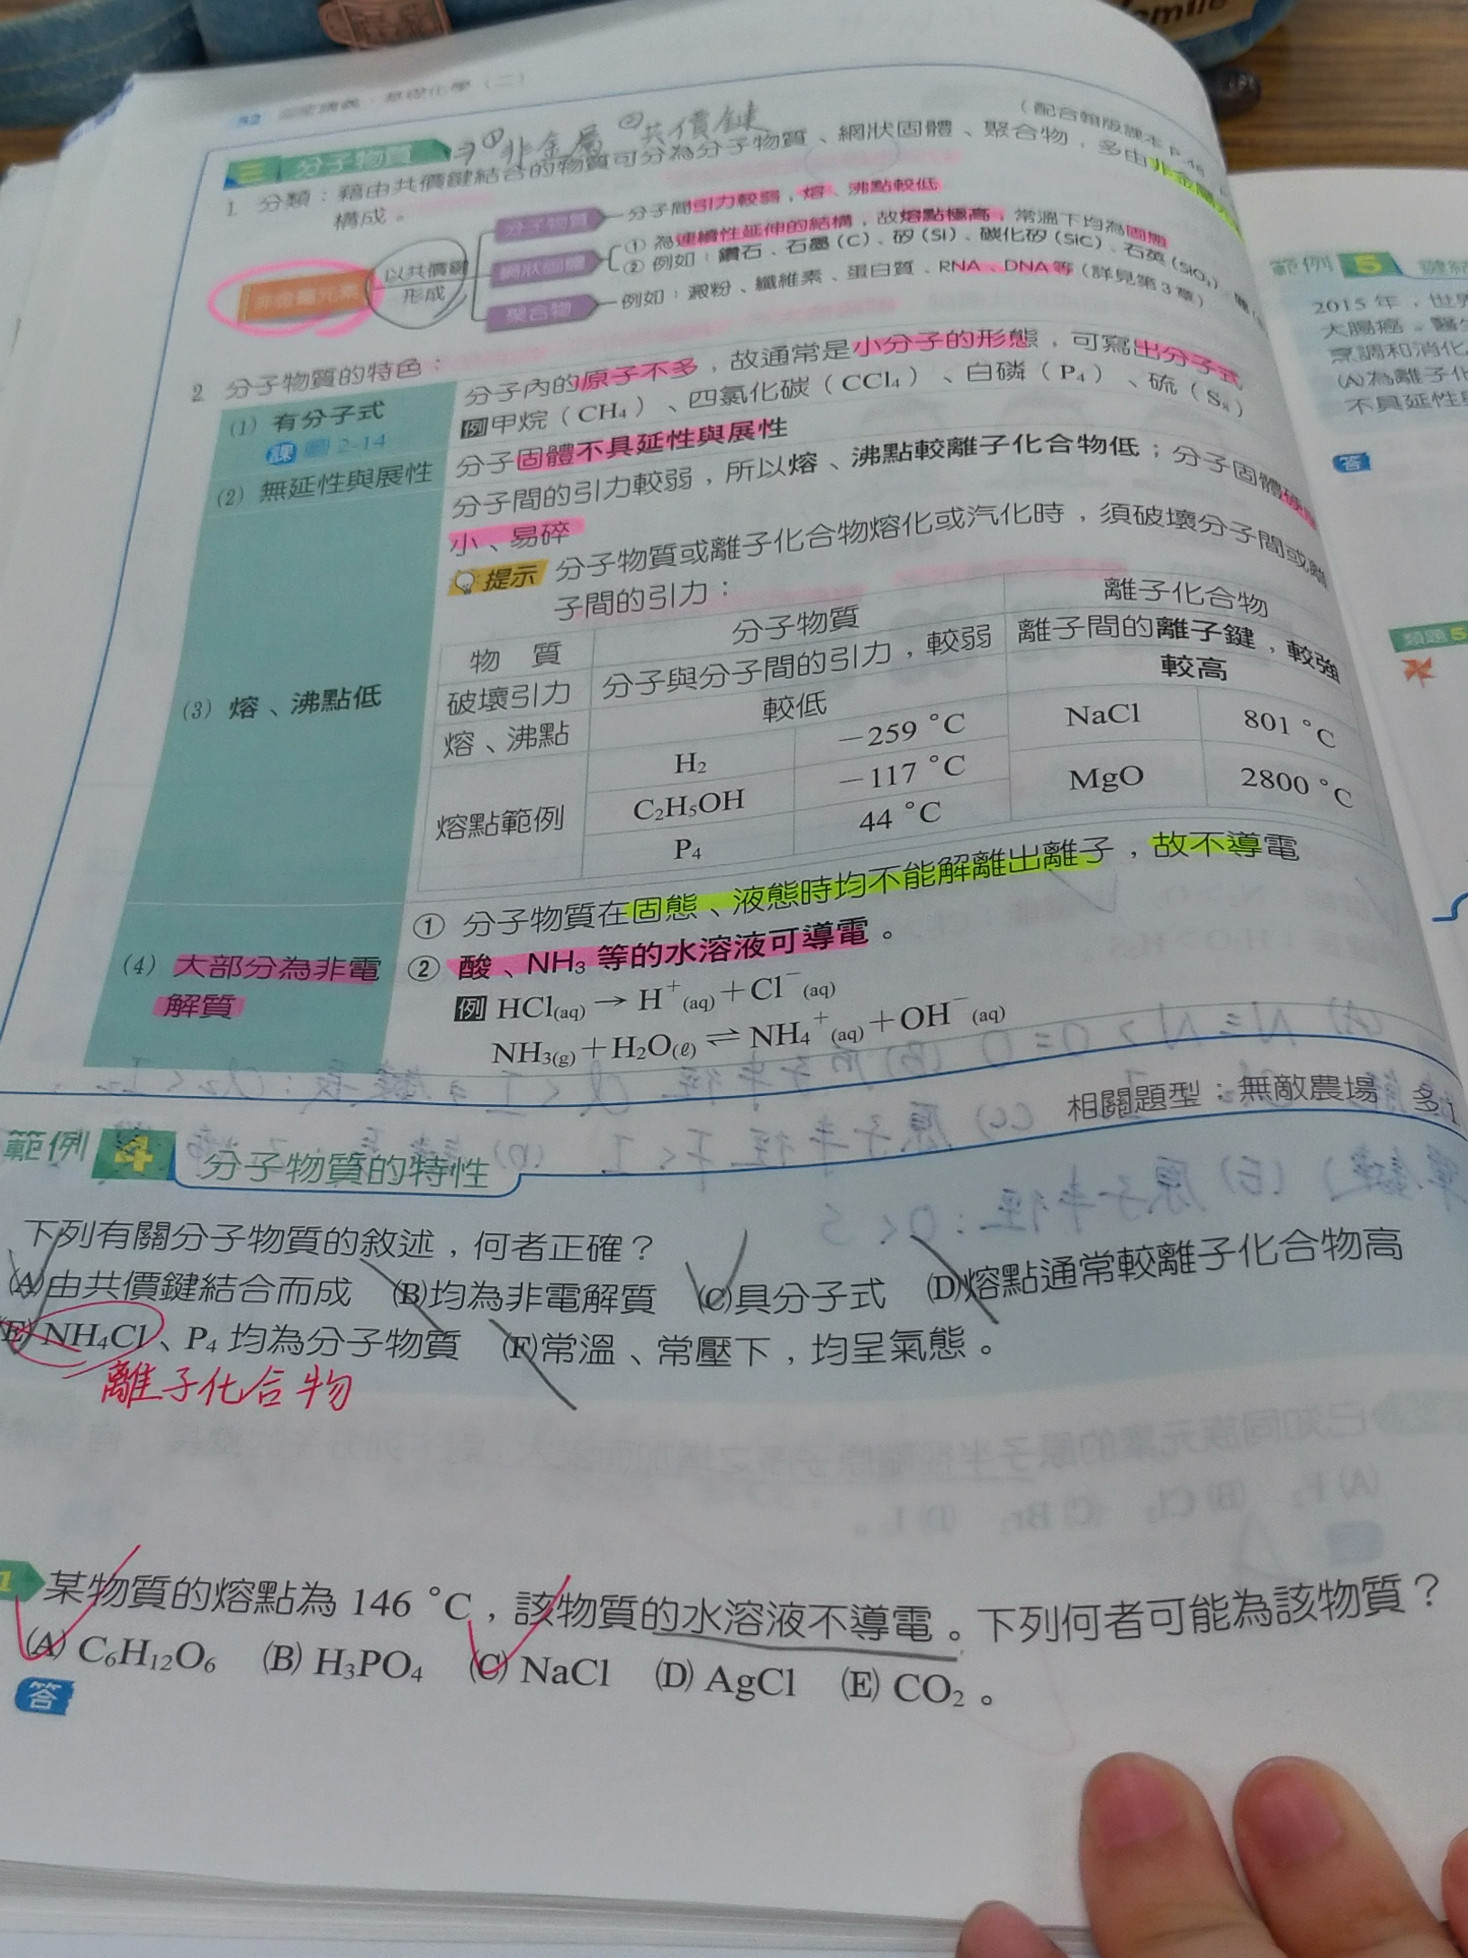 smile
32
（配合翰版課本 P.46
三 分子物質 ⇒①非金屬 ②共價鍵
1. 分類：藉由共價鍵結合的物質可分為分子物質、網狀固體、聚合物，多由非金屬
構成。
非金屬元素
以共價鍵
形成
分子物質 分子間引力較弱，熔、沸點較低
網狀固體 ① 為連續性延伸的結構，故熔點極高，常溫下均為固態
② 例如：鑽石、石墨（C）、矽（Si）、碳化矽（SiC）、石英（SiO₂）
聚合物 例如：澱粉、纖維素、蛋白質、RNA、DNA 等（詳見第 3 章）
2. 分子物質的特色：
(1) 有分子式
課 圖 2-14
分子內的原子不多，故通常是小分子的形態，可寫出分子式
例 甲烷（CH₄）、四氯化碳（CCl₄）、白磷（P₄）、硫（S₈）
(2) 無延性與展性
分子固體不具延性與展性
(3) 熔、沸點低
分子間的引力較弱，所以熔、沸點較離子化合物低；分子固體硬度
小、易碎
提示 分子物質或離子化合物熔化或汽化時，須破壞分子間或離
子間的引力：
物 質 分子物質 離子化合物
破壞引力 分子與分子間的引力，較弱 離子間的離子鍵，較強
熔、沸點 較低 較高
熔點範例 H₂ －259 °C NaCl 801 °C
C₂H₅OH －117 °C MgO 2800 °C
P₄ 44 °C
(4) 大部分為非電
解質
① 分子物質在固態、液態時均不能解離出離子，故不導電
② 酸、NH₃ 等的水溶液可導電。
例 HCl(aq) → H⁺(aq)＋Cl⁻(aq)
NH₃(g)＋H₂O(ℓ) ⇌ NH₄⁺(aq)＋OH⁻(aq)
範例 4 分子物質的特性
相關題型：無敵農場 多1
下列有關分子物質的敘述，何者正確？
(A)由共價鍵結合而成 (B)均為非電解質 (C)具分子式 (D)熔點通常較離子化合物高
(E) NH₄Cl、P₄ 均為分子物質 (F)常溫、常壓下，均呈氣態。
離子化合物
1 某物質的熔點為 146 °C，該物質的水溶液不導電。下列何者可能為該物質？
(A) C₆H₁₂O₆ (B) H₃PO₄ (C) NaCl (D) AgCl (E) CO₂。
答
範例 5
2015 年，世
大腸癌。醫
烹調和消化
(A)為離子化
不具延性
答
類題 5